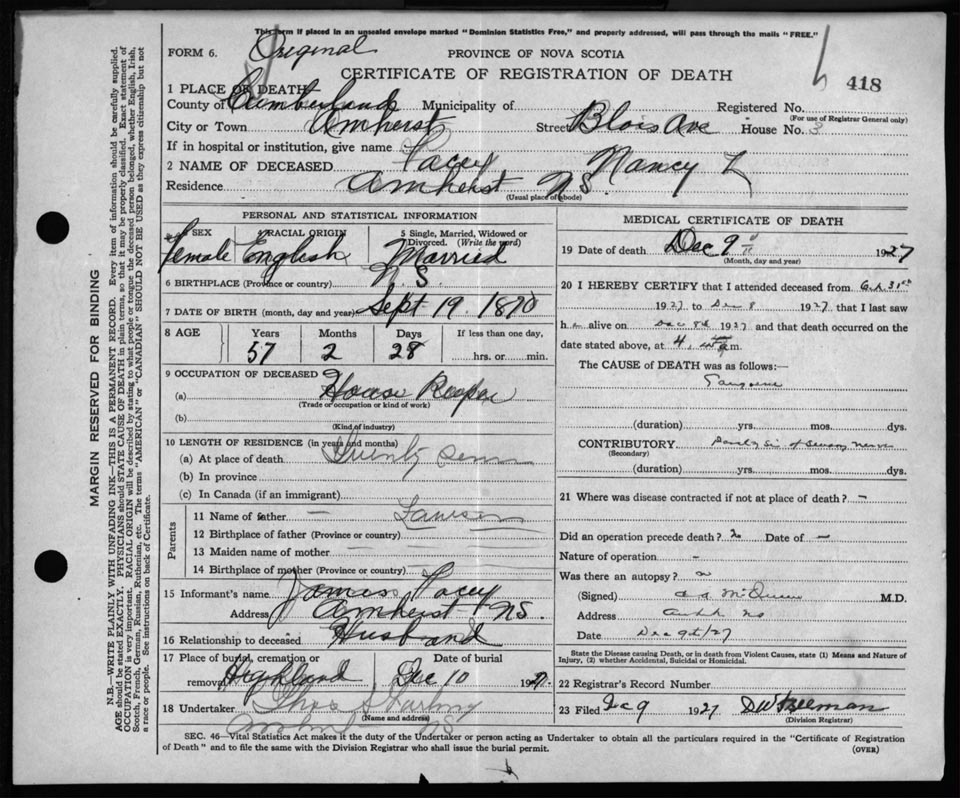 This form if placed in an unsealed envelope marked "Dominion Statistics Free," and properly addressed, will pass through the mails "FREE."
FORM 6. Original PROVINCE OF NOVA SCOTIA
CERTIFICATE OF REGISTRATION OF DEATH 418
1 PLACE OF DEATH
County of Cumberland Municipality of Registered No.
(For use of Registrar General only)
City or Town Amherst Street Blois Ave House No. 3
If in hospital or institution, give name
2 NAME OF DECEASED Pacey Nancy L
Residence Amherst NS.
(Usual place of abode)
PERSONAL AND STATISTICAL INFORMATION
3 SEX 4 RACIAL ORIGIN 5 Single, Married, Widowed or Divorced. (Write the word)
Female English Married
6 BIRTHPLACE (Province or country) N.S.
7 DATE OF BIRTH (month, day and year) Sept 19. 1870
8 AGE Years Months Days If less than one day,
57 2 28 hrs. or min.
9 OCCUPATION OF DECEASED
(a) House Keeper
(Trade or occupation or kind of work)
(b)
(Kind of industry)
10 LENGTH OF RESIDENCE (in years and months)
(a) At place of death Twenty
(b) In province
(c) In Canada (if an immigrant)
Parents
11 Name of father — Lawson
12 Birthplace of father (Province or country)
13 Maiden name of mother
14 Birthplace of mother (Province or country)
15 Informant's name James Pacey
Address Amherst NS.
16 Relationship to deceased Husband
17 Place of burial, cremation or removal Date of burial
Highland Dec 10 1927.
18 Undertaker Thos
(Name and address)
NS
MEDICAL CERTIFICATE OF DEATH
19 Date of death Dec 9 1927
(Month, day and year)
20 I HEREBY CERTIFY that I attended deceased from 31st
1927 to Dec 8 1927 that I saw
h alive on Dec 8th 1927 and that death occurred on the
date stated above, at 4 m.
The CAUSE of DEATH was as follows:—
Gangrene
(duration) yrs. mos. dys.
CONTRIBUTORY
(Secondary)
(duration) yrs. mos. dys.
21 Where was disease contracted if not at place of death? –
Did an operation precede death? Date of –
Nature of operation –
Was there an autopsy?
(Signed) McQueen M.D.
Address
Date Dec 9th/27
State the Disease causing Death, or in death from Violent Causes, state (1) Means and Nature of Injury, (2) whether Accidental, Suicidal or Homicidal.
22 Registrar's Record Number
23 Filed Dec 9 1927
(Division Registrar)
SEC. 46—Vital Statistics Act makes it the duty of the Undertaker or person acting as Undertaker to obtain all the particulars required in the "Certificate of Registration
of Death" and to file the same with the Division Registrar who shall issue the burial permit. (OVER)
MARGIN RESERVED FOR BINDING
N.B.—WRITE PLAINLY WITH UNFADING INK—THIS IS A PERMANENT RECORD. Every item of information should be carefully supplied.
AGE should be stated EXACTLY. PHYSICIANS should STATE CAUSE OF DEATH in plain terms, so that it may be properly classified. Exact statement of
OCCUPATION is very important. RACIAL ORIGIN will be described by stating to what people or tongue the deceased person belonged, whether English, Irish,
Scotch, French, German, Russian, Ruthenian, etc. The terms "AMERICAN" or "CANADIAN" SHOULD NOT BE USED as they express citizenship but not
a race or people. See instructions on back of Certificate.